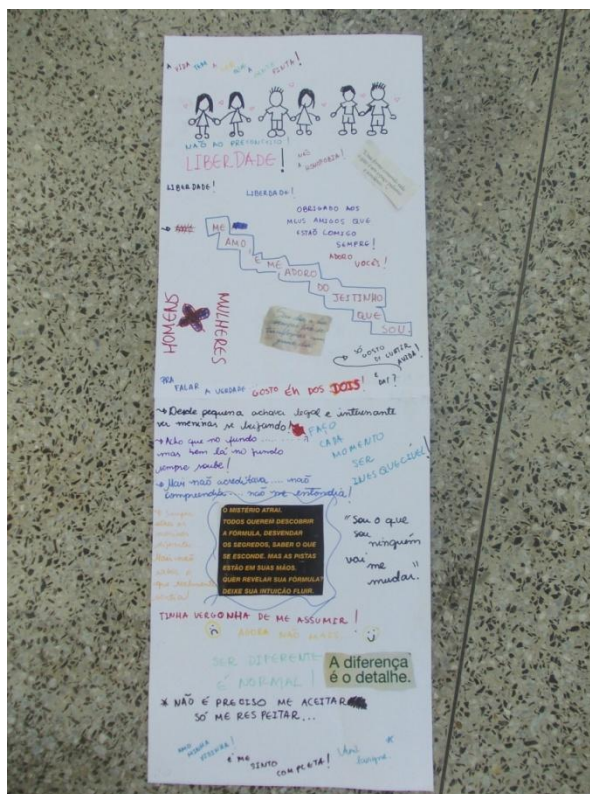 A VIDA TEM A COR QUE A GENTE PINTA!
NÃO AO PRECONCEITO!
LIBERDADE!
NÃO A HOMOFOBIA!
LIBERDADE!
LIBERDADE!
OBRIGADO AOS
MEUS AMIGOS QUE
ESTÃO COMIGO
SEMPRE!
ADORO VOCÊS!
ME
AMO
E ME
ADORO
DO
JEITINHO
QUE
SOU!
HOMENS X MULHERES
SÓ
GOSTO
DI CURTIR
A VIDA!
PRA
FALAR A VERDADE GOSTO ÉH DOS DOIS! E
DAI?
→ Desde pequena achava legal e
ver meninas se beijando!
→ Acho que no fundo ..........
mas bem lá no fundo
sempre soube!
→ Mais não acreditava ..... não
compreendia ..... não me entendia!
FAÇO
CADA
MOMENTO
SER
INESQUECÍVEL!
O MISTÉRIO ATRAI.
TODOS QUEREM DESCOBRIR
A FÓRMULA, DESVENDAR
OS SEGREDOS, SABER O QUE
SE ESCONDE. MAS AS PISTAS
ESTÃO EM SUAS MÃOS.
QUER REVELAR SUA FÓRMULA?
DEIXE SUA INTUIÇÃO FLUIR.
"Sou o que
sou
ninguém
vai me
mudar."
TINHA VERGONHA DE ME ASSUMIR!
AGORA NÃO MAIS...
SER DIFERENTE
É NORMAL!
A diferença
é o detalhe.
* NÃO É PRECISO ME ACEITAR
SÓ ME RESPEITAR...
E ME
SINTO
COMPLETA!